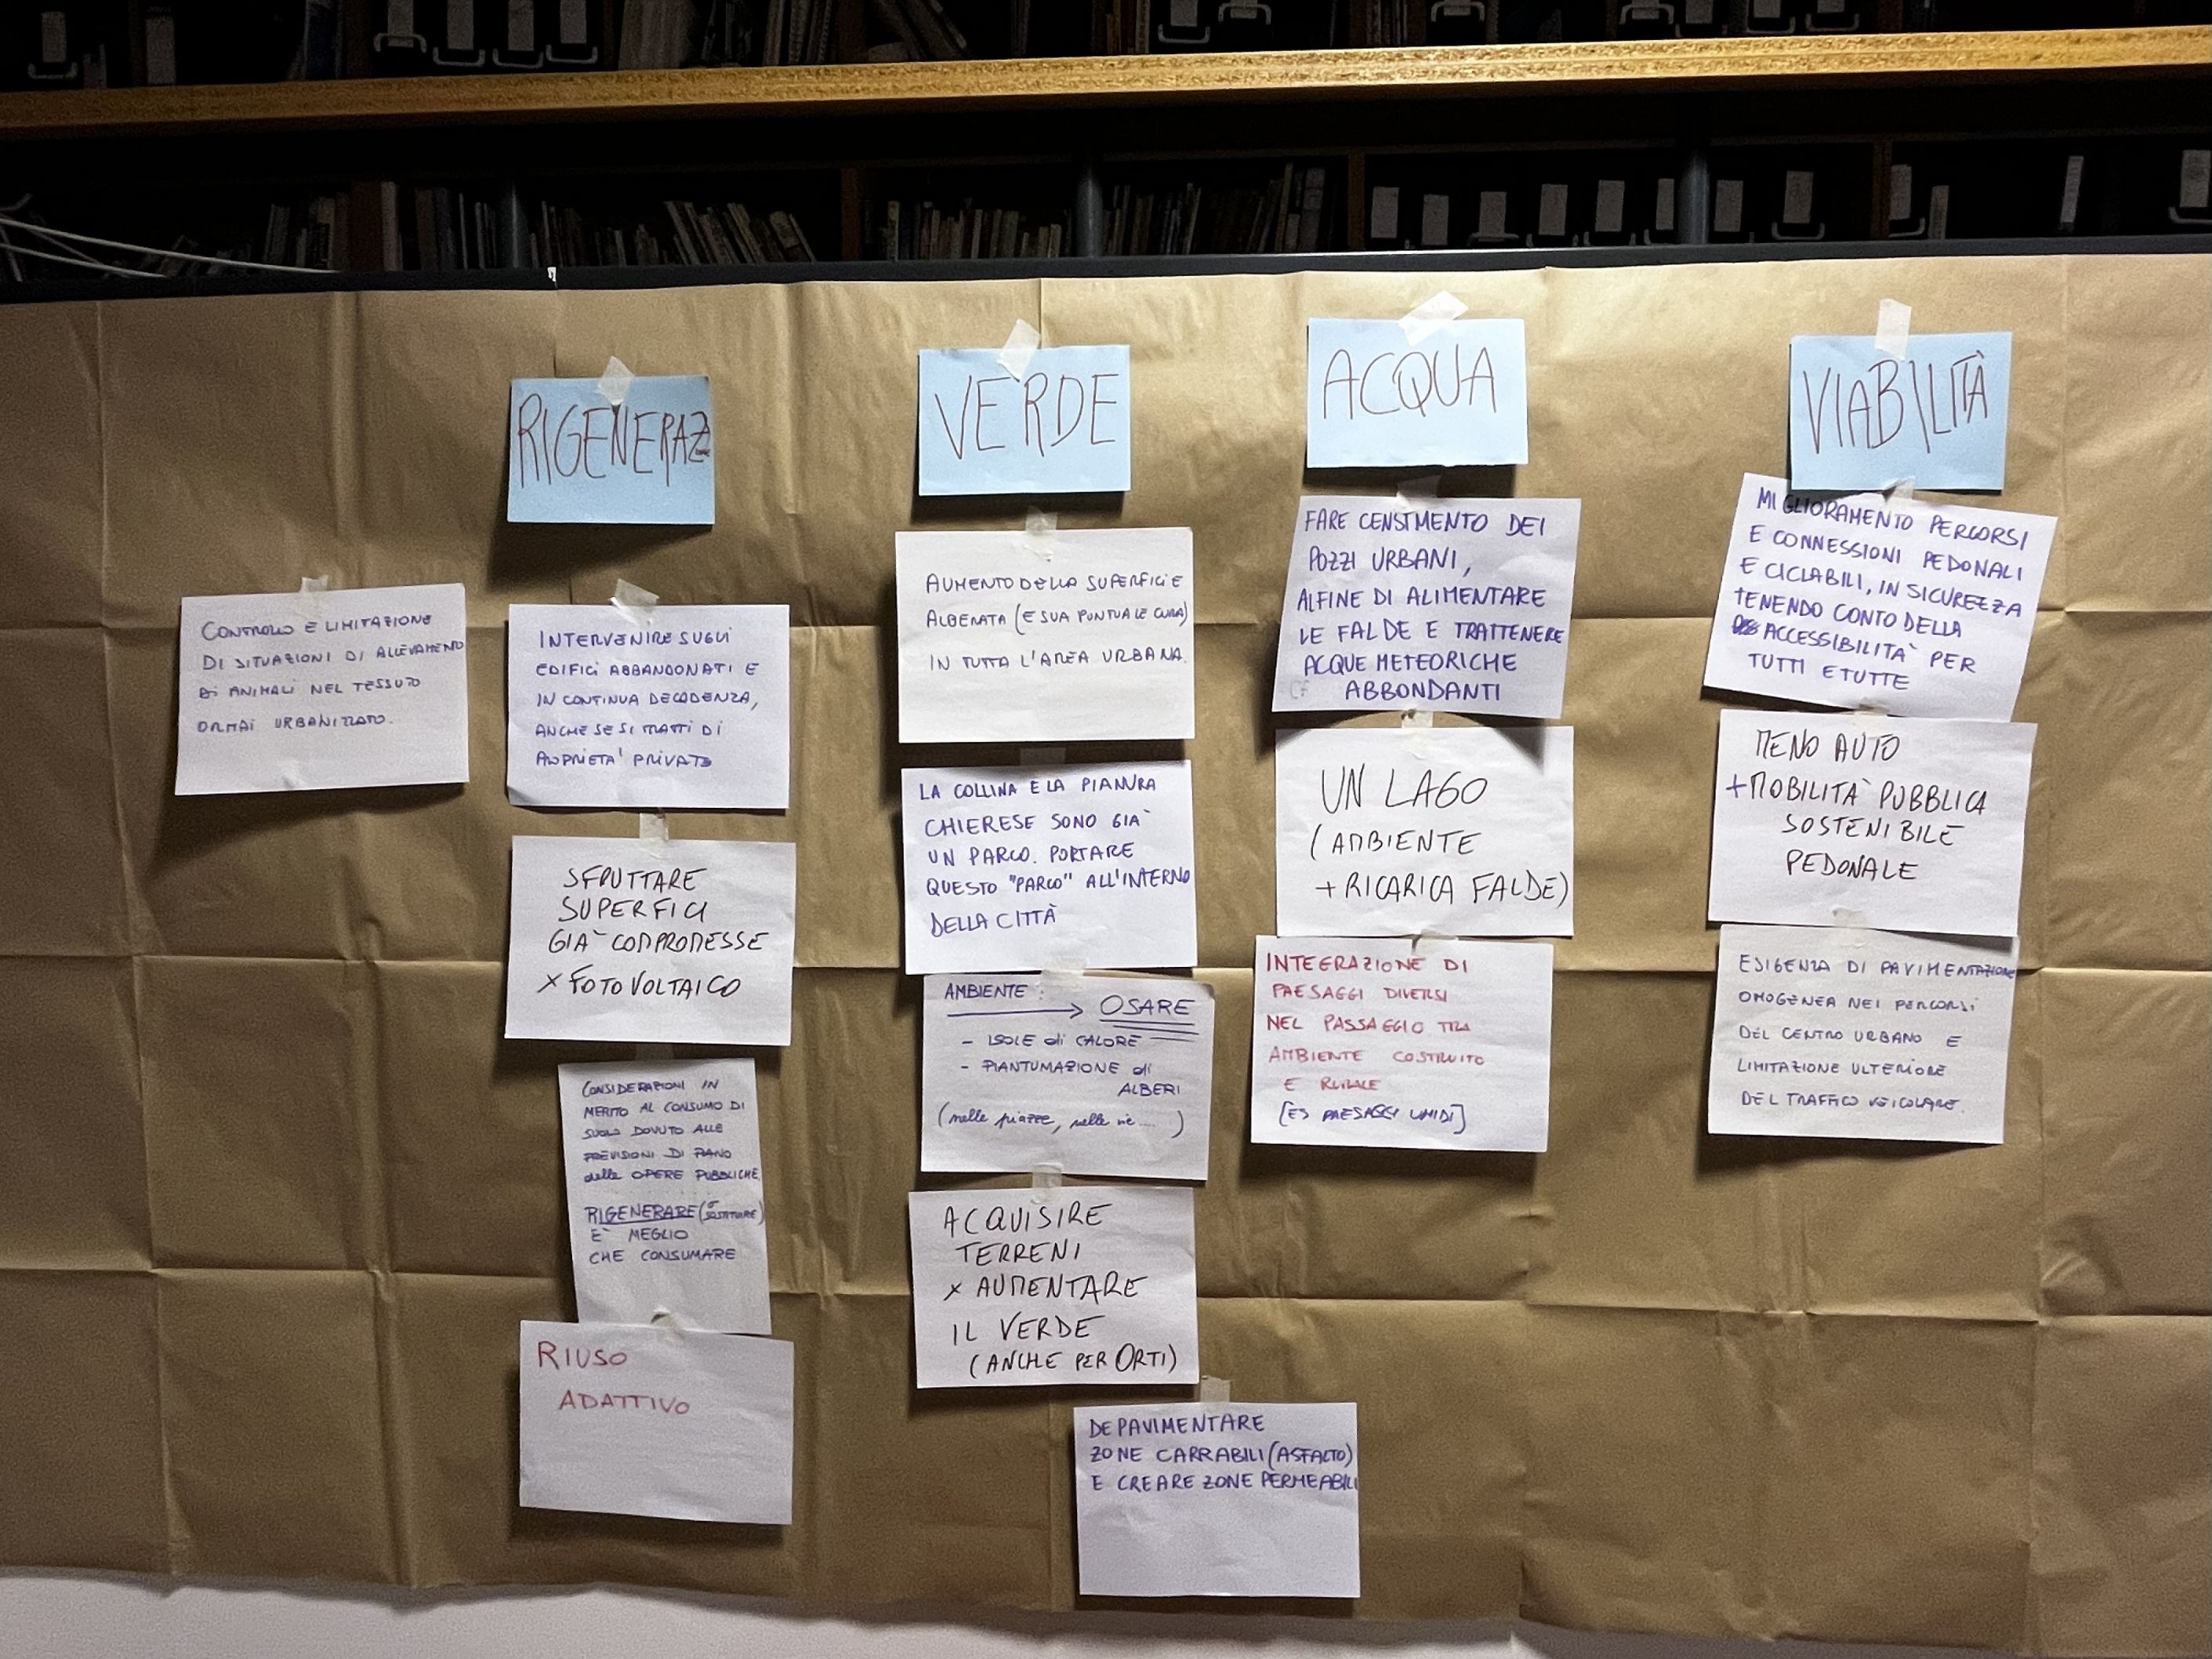 RIGENERAZ
VERDE
ACQUA
VIABILITÀ
CONTROLLO E LIMITAZIONE
DI SITUAZIONI DI ALLEVAMENTO
DI ANIMALI NEL TESSUTO
ORMAI URBANIZZATO.
INTERVENIRE SUGLI
EDIFICI ABBANDONATI E
IN CONTINUA DECADENZA,
ANCHE SE SI TRATTI DI
PROPRIETA' PRIVATA
SFRUTTARE
SUPERFICI
GIA' COMPROMESSE
x FOTOVOLTAICO
CONSIDERAZIONI IN
MERITO AL CONSUMO DI
SUOLO DOVUTO ALLE
PREVISIONI DI PIANO
delle OPERE PUBBLICHE
RIGENERARE (O SOSTITUIRE)
E' MEGLIO
CHE CONSUMARE
RIUSO
ADATTIVO
AUMENTO DELLA SUPERFICIE
ALBERATA (E SUA PUNTUALE CURA)
IN TUTTA L'AREA URBANA.
LA COLLINA E LA PIANURA
CHIERESE SONO GIA'
UN PARCO. PORTARE
QUESTO "PARCO" ALL'INTERNO
DELLA CITTÀ
AMBIENTE:
→ OSARE
- ISOLE di CALORE
- PIANTUMAZIONE di
ALBERI
(nelle piazze, nelle vie....)
ACQUISIRE
TERRENI
x AUMENTARE
IL VERDE
(ANCHE PER ORTI)
DEPAVIMENTARE
ZONE CARRABILI (ASFALTO)
E CREARE ZONE PERMEABILI
FARE CENSIMENTO DEI
POZZI URBANI,
ALFINE DI ALIMENTARE
LE FALDE E TRATTENERE
ACQUE METEORICHE
ABBONDANTI
UN LAGO
(AMBIENTE
+ RICARICA FALDE)
INTEGRAZIONE DI
PAESAGGI DIVERSI
NEL PASSAGGIO TRA
AMBIENTE COSTRUITO
E RURALE
[ES PAESAGGI UMIDI]
MIGLIORAMENTO PERCORSI
E CONNESSIONI PEDONALI
E CICLABILI, IN SICUREZZA
TENENDO CONTO DELLA
ACCESSIBILITA' PER
TUTTI E TUTTE
MENO AUTO
+ MOBILITA' PUBBLICA
SOSTENIBILE
PEDONALE
ESIGENZA DI PAVIMENTAZIONE
OMOGENEA NEI PERCORSI
DEL CENTRO URBANO E
LIMITAZIONE ULTERIORE
DEL TRAFFICO VEICOLARE.